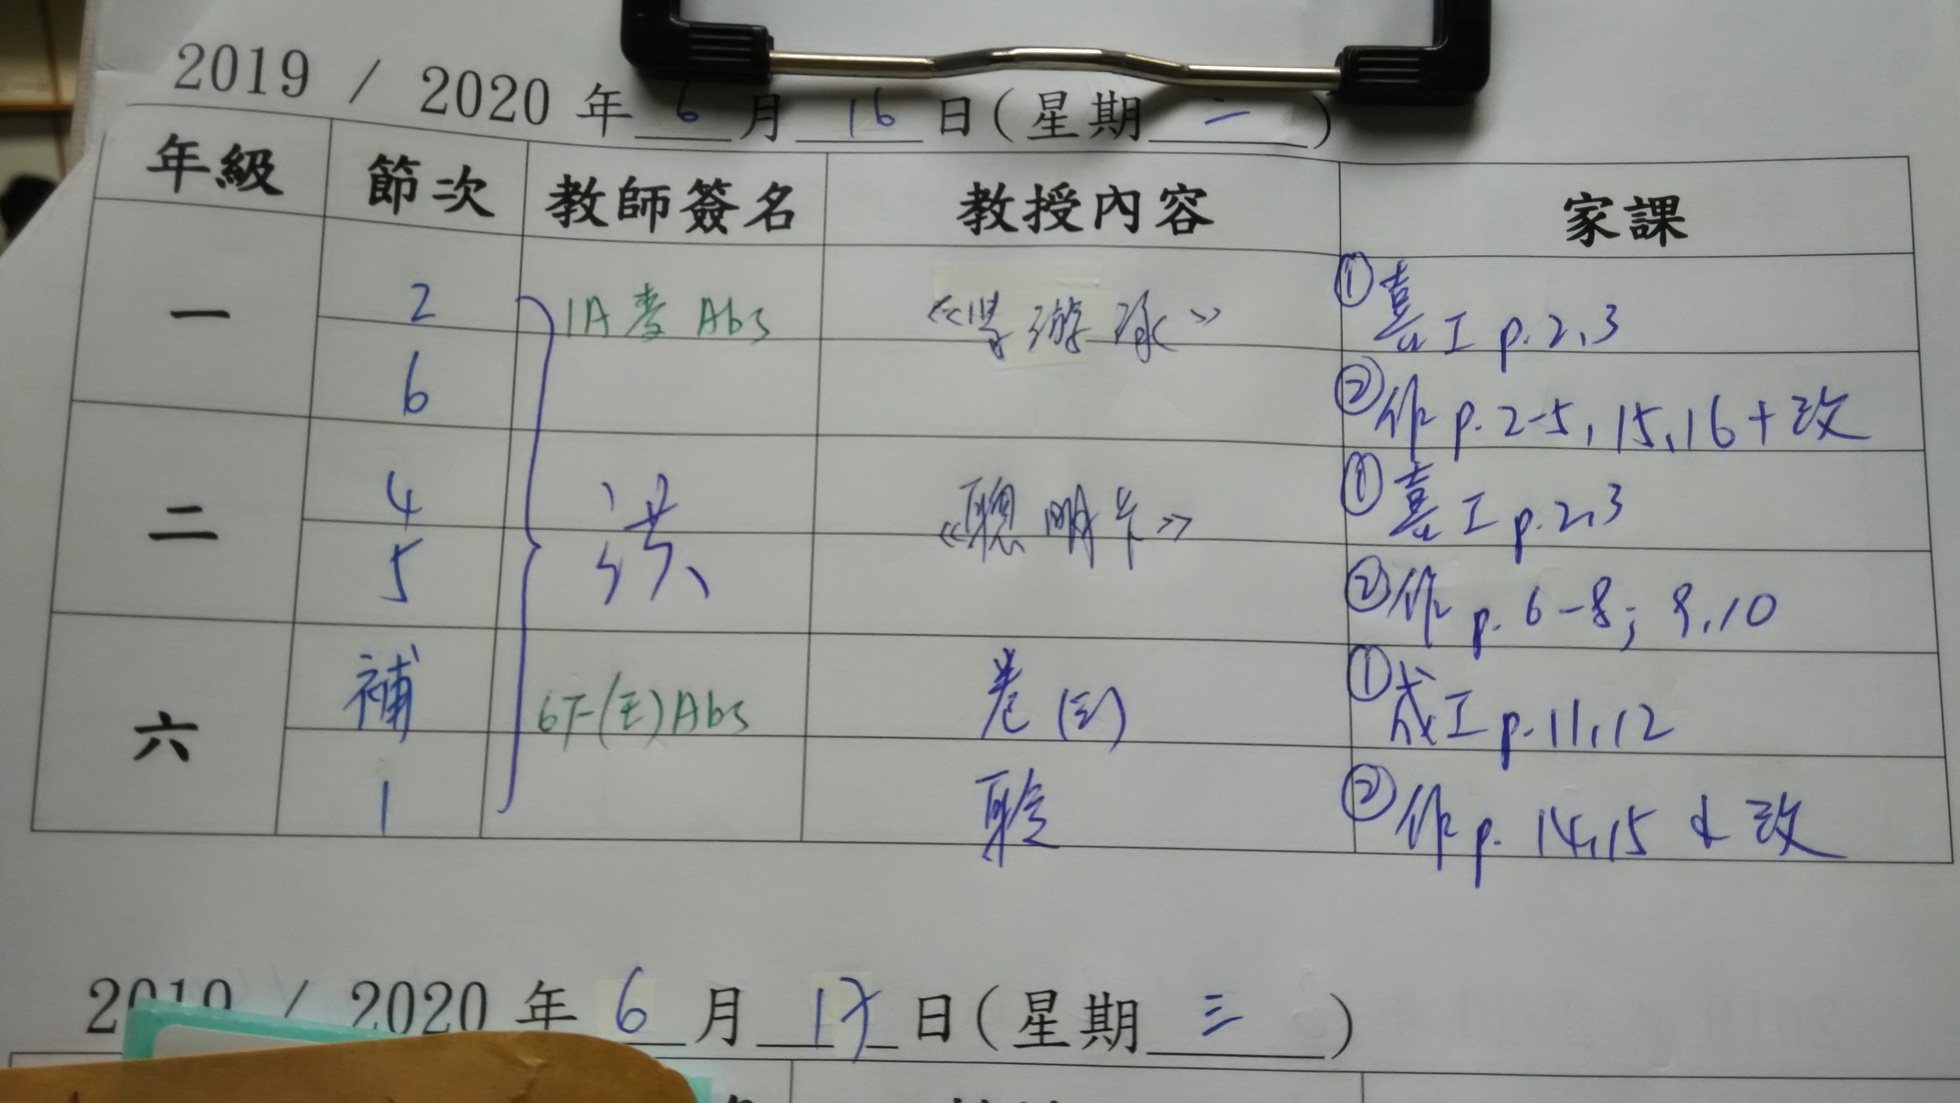 2019 / 2020 年 6 月 16 日(星期 二 )
年級 節次 教師簽名 教授內容 家課
一 2 1A 麥 Abs 《學游泳》 ①喜工 p.2,3
6 ②作 p.2-5, 15,16 + 改
二 4 洪 《聰明卡》 ①喜工 p.2,3
5 ②作 p. 6-8; 9,10
六 補 6F Abs 卷 ①成工 p.11,12
1 聆 ②作 p. 14,15 & 改
2019 / 2020 年 6 月 17 日(星期 三 )